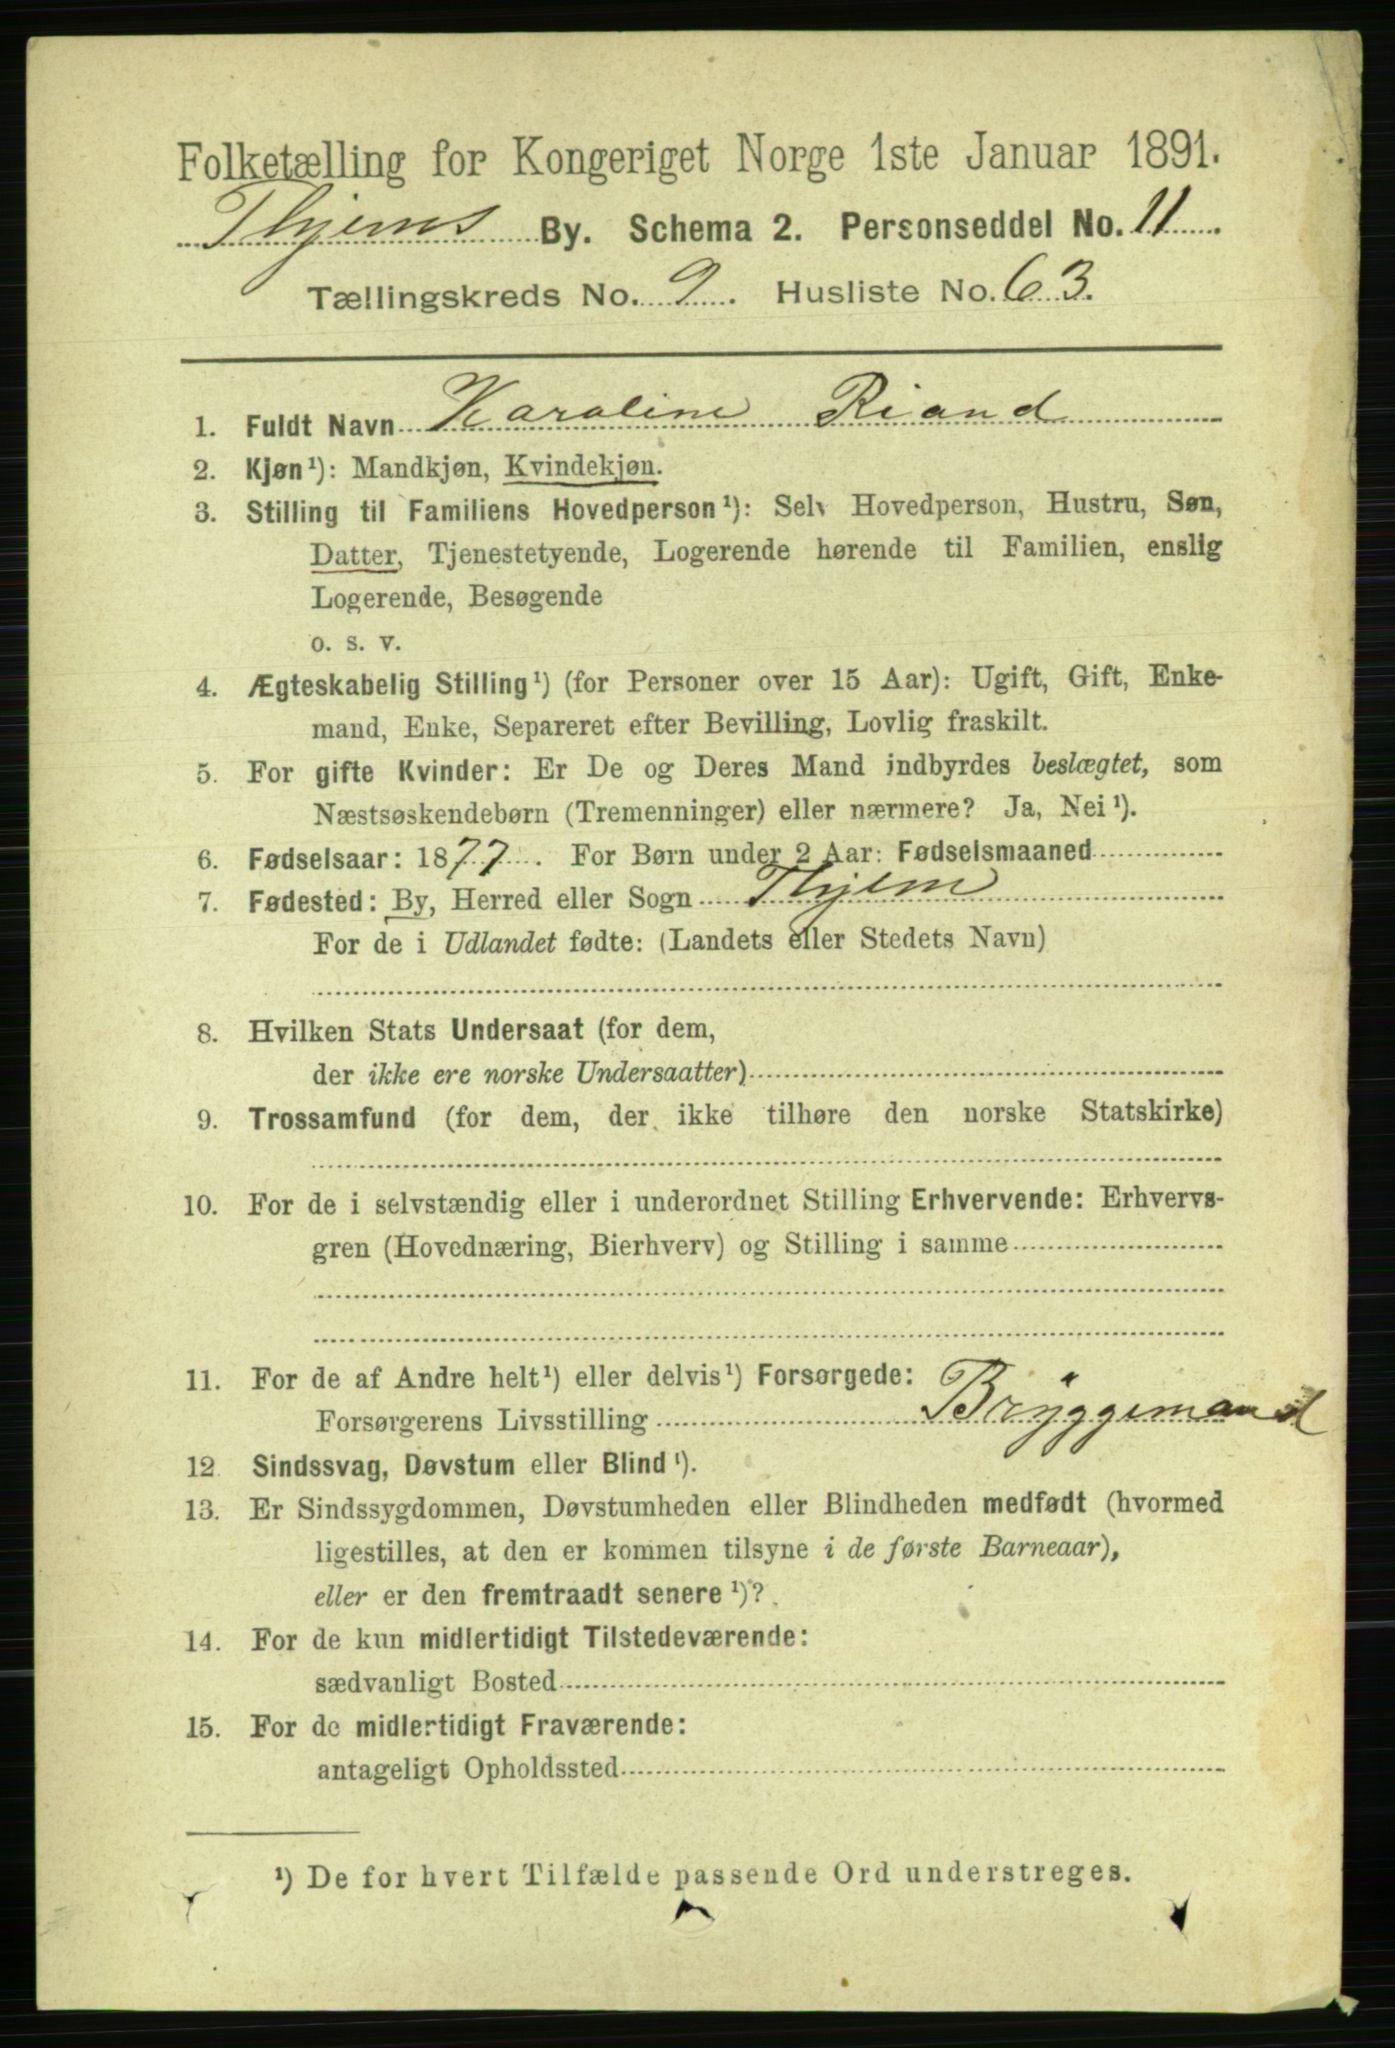 Folketælling for Kongeriget Norge 1ste Januar 1891.
Thjems By. Schema 2. Personseddel No. 11.
Tællingskreds No. 9. Husliste No. 63.
1. Fuldt Navn Karoline Riand
2. Kjøn¹): Mandkjøn, Kvindekjøn.
3. Stilling til Familiens Hovedperson¹): Selv Hovedperson, Hustru, Søn,
Datter, Tjenestetyende, Logerende hørende til Familien, enslig
Logerende, Besøgende
o. s. v.
4. Ægteskabelig Stilling¹) (for Personer over 15 Aar): Ugift, Gift, Enke-
mand, Enke, Separeret efter Bevilling, Lovlig fraskilt.
5. For gifte Kvinder: Er De og Deres Mand indbyrdes beslægtet, som
Næstsøskendebørn (Tremenninger) eller nærmere? Ja, Nei¹).
6. Fødselsaar: 1877. For Børn under 2 Aar: Fødselsmaaned
7. Fødested: By, Herred eller Sogn Thjem
For de i Udlandet fødte: (Landets eller Stedets Navn)
8. Hvilken Stats Undersaat (for dem,
der ikke ere norske Undersaatter)
9. Trossamfund (for dem, der ikke tilhøre den norske Statskirke)
10. For de i selvstændig eller i underordnet Stilling Erhvervende: Erhvervs-
gren (Hovednæring, Bierhverv) og Stilling i samme
11. For de af Andre helt¹) eller delvis¹) Forsørgede:
Forsørgerens Livsstilling Bryggemand
12. Sindssvag, Døvstum eller Blind¹).
13. Er Sindssygdommen, Døvstumheden eller Blindheden medfødt (hvormed
ligestilles, at den er kommen tilsyne i de første Barneaar),
eller er den fremtraadt senere¹)?
14. For de kun midlertidigt Tilstedeværende:
sædvanligt Bosted
15. For de midlertidigt Fraværende:
antageligt Opholdssted
¹) De for hvert Tilfælde passende Ord understreges.